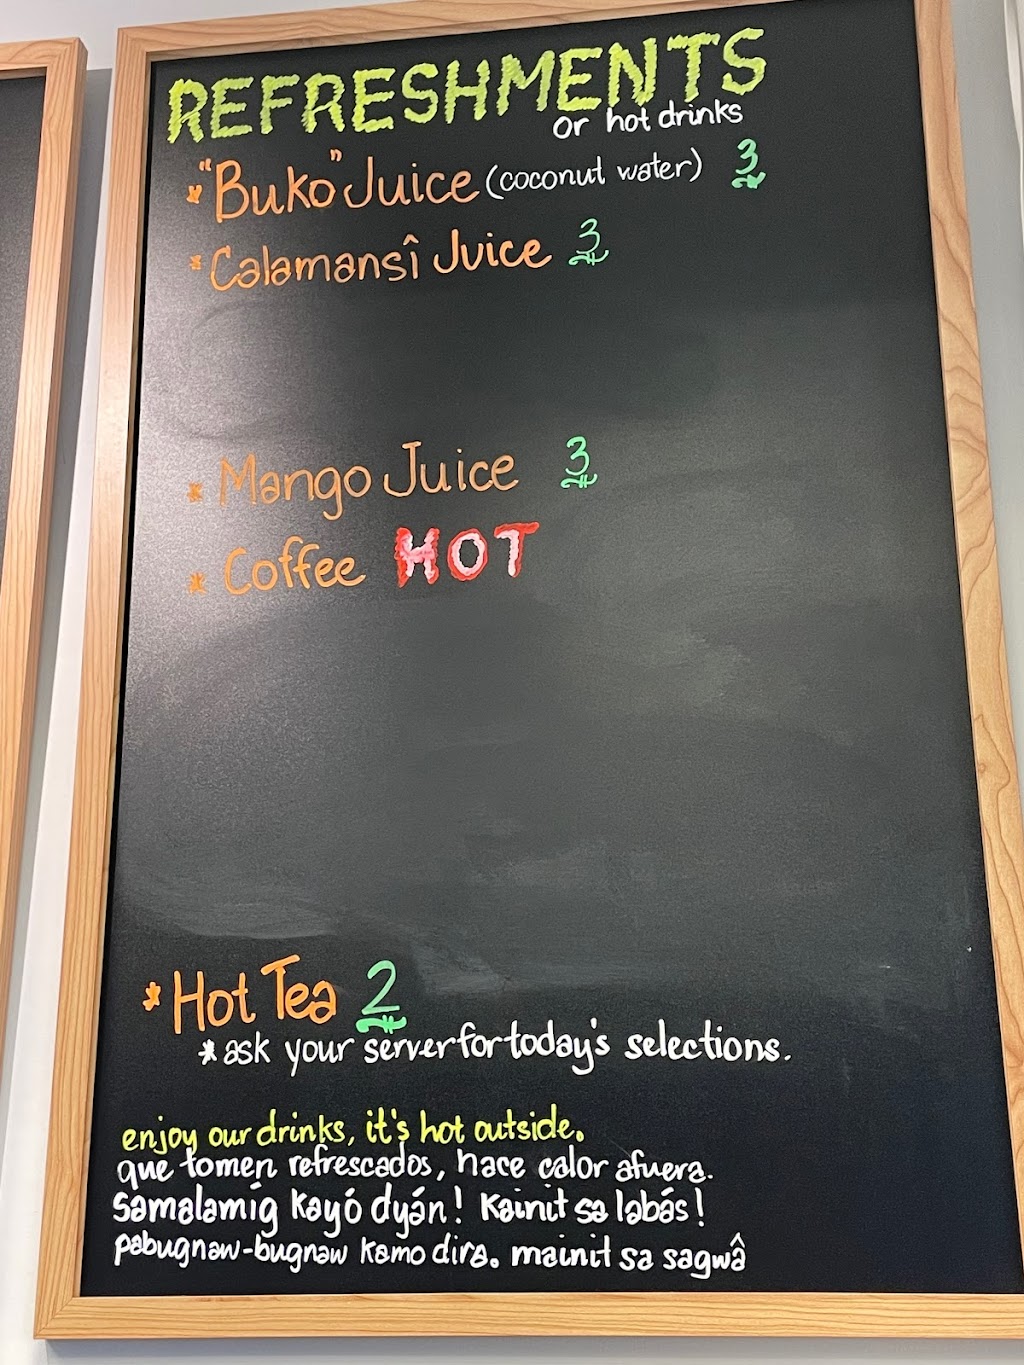 REFRESHMENTS
or hot drinks
* "Buko" Juice (coconut water) 3
* Calamansî Juice 3
* Mango Juice 3
* Coffee HOT
* Hot Tea 2
* ask your server for today's selections.
enjoy our drinks, it's hot outside.
que tomen refrescados, hace calor afuera.
Samalamíg kayó dyán! Kainit sa labás!
pabugnaw-bugnaw kamo dira. mainit sa sagwâ